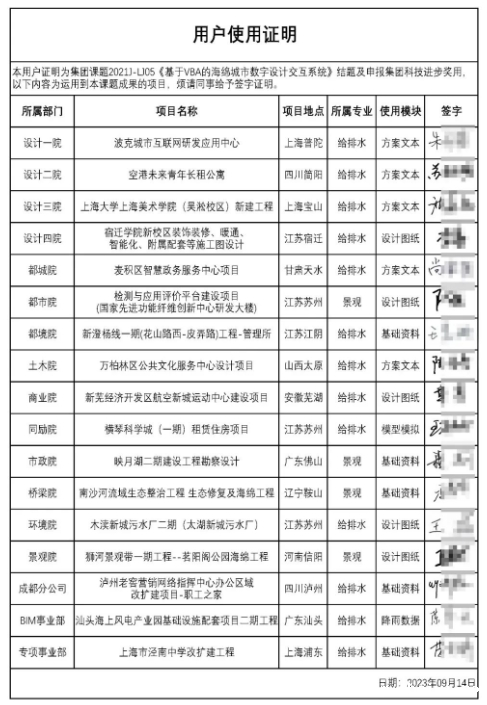 用户使用证明
本用户证明为集团课题2021J-LJ05《基于VBA的海绵城市数字设计交互系统》结题及申报集团科技进步奖用，
以下内容为运用到本课题成果的项目，烦请同事给予签字证明。
所属部门 项目名称 项目地点 所属专业 使用模块 签字
设计一院 波克城市互联网研发应用中心 上海普陀 给排水 方案文本
设计二院 空港未来青年长租公寓 四川简阳 给排水 方案文本
设计三院 上海大学上海美术学院（吴淞校区）新建工程 上海宝山 给排水 方案文本
设计四院 宿迁学院新校区装饰装修、暖通、
智能化、附属配套等施工图设计 江苏宿迁 给排水 设计图纸
都城院 麦积区智慧政务服务中心项目 甘肃天水 给排水 方案文本
都市院 检测与应用评价平台建设项目
(国家先进功能纤维创新中心研发大楼) 江苏苏州 景观 设计图纸
都境院 新澄杨线一期(花山路西-皮弄路)工程-管理所 江苏江阴 给排水 基础资料
土木院 万柏林区公共文化服务中心设计项目 山西太原 给排水 方案文本
商业院 新芜经济开发区航空新城运动中心建设项目 安徽芜湖 给排水 设计图纸
同励院 横琴科学城（一期）租赁住房项目 江苏苏州 给排水 模型模拟
市政院 映月湖二期建设工程勘察设计 广东佛山 景观 基础资料
桥梁院 南沙河流域生态整治工程 生态修复及海绵工程 辽宁鞍山 景观 基础资料
环境院 木渎新城污水厂二期（太湖新城污水厂） 江苏苏州 给排水 设计图纸
景观院 狮河景观带一期工程--茗阳阁公园海绵工程 河南信阳 景观 设计图纸
成都分公司 泸州老窖营销网络指挥中心办公区域
改扩建项目-职工之家 四川泸州 给排水 基础资料
BIM事业部 汕头海上风电产业园基础设施配套项目二期工程 广东汕头 给排水 降雨数据
专项事业部 上海市泾南中学改扩建工程 上海浦东 给排水 基础资料
日期：2023年09月14日